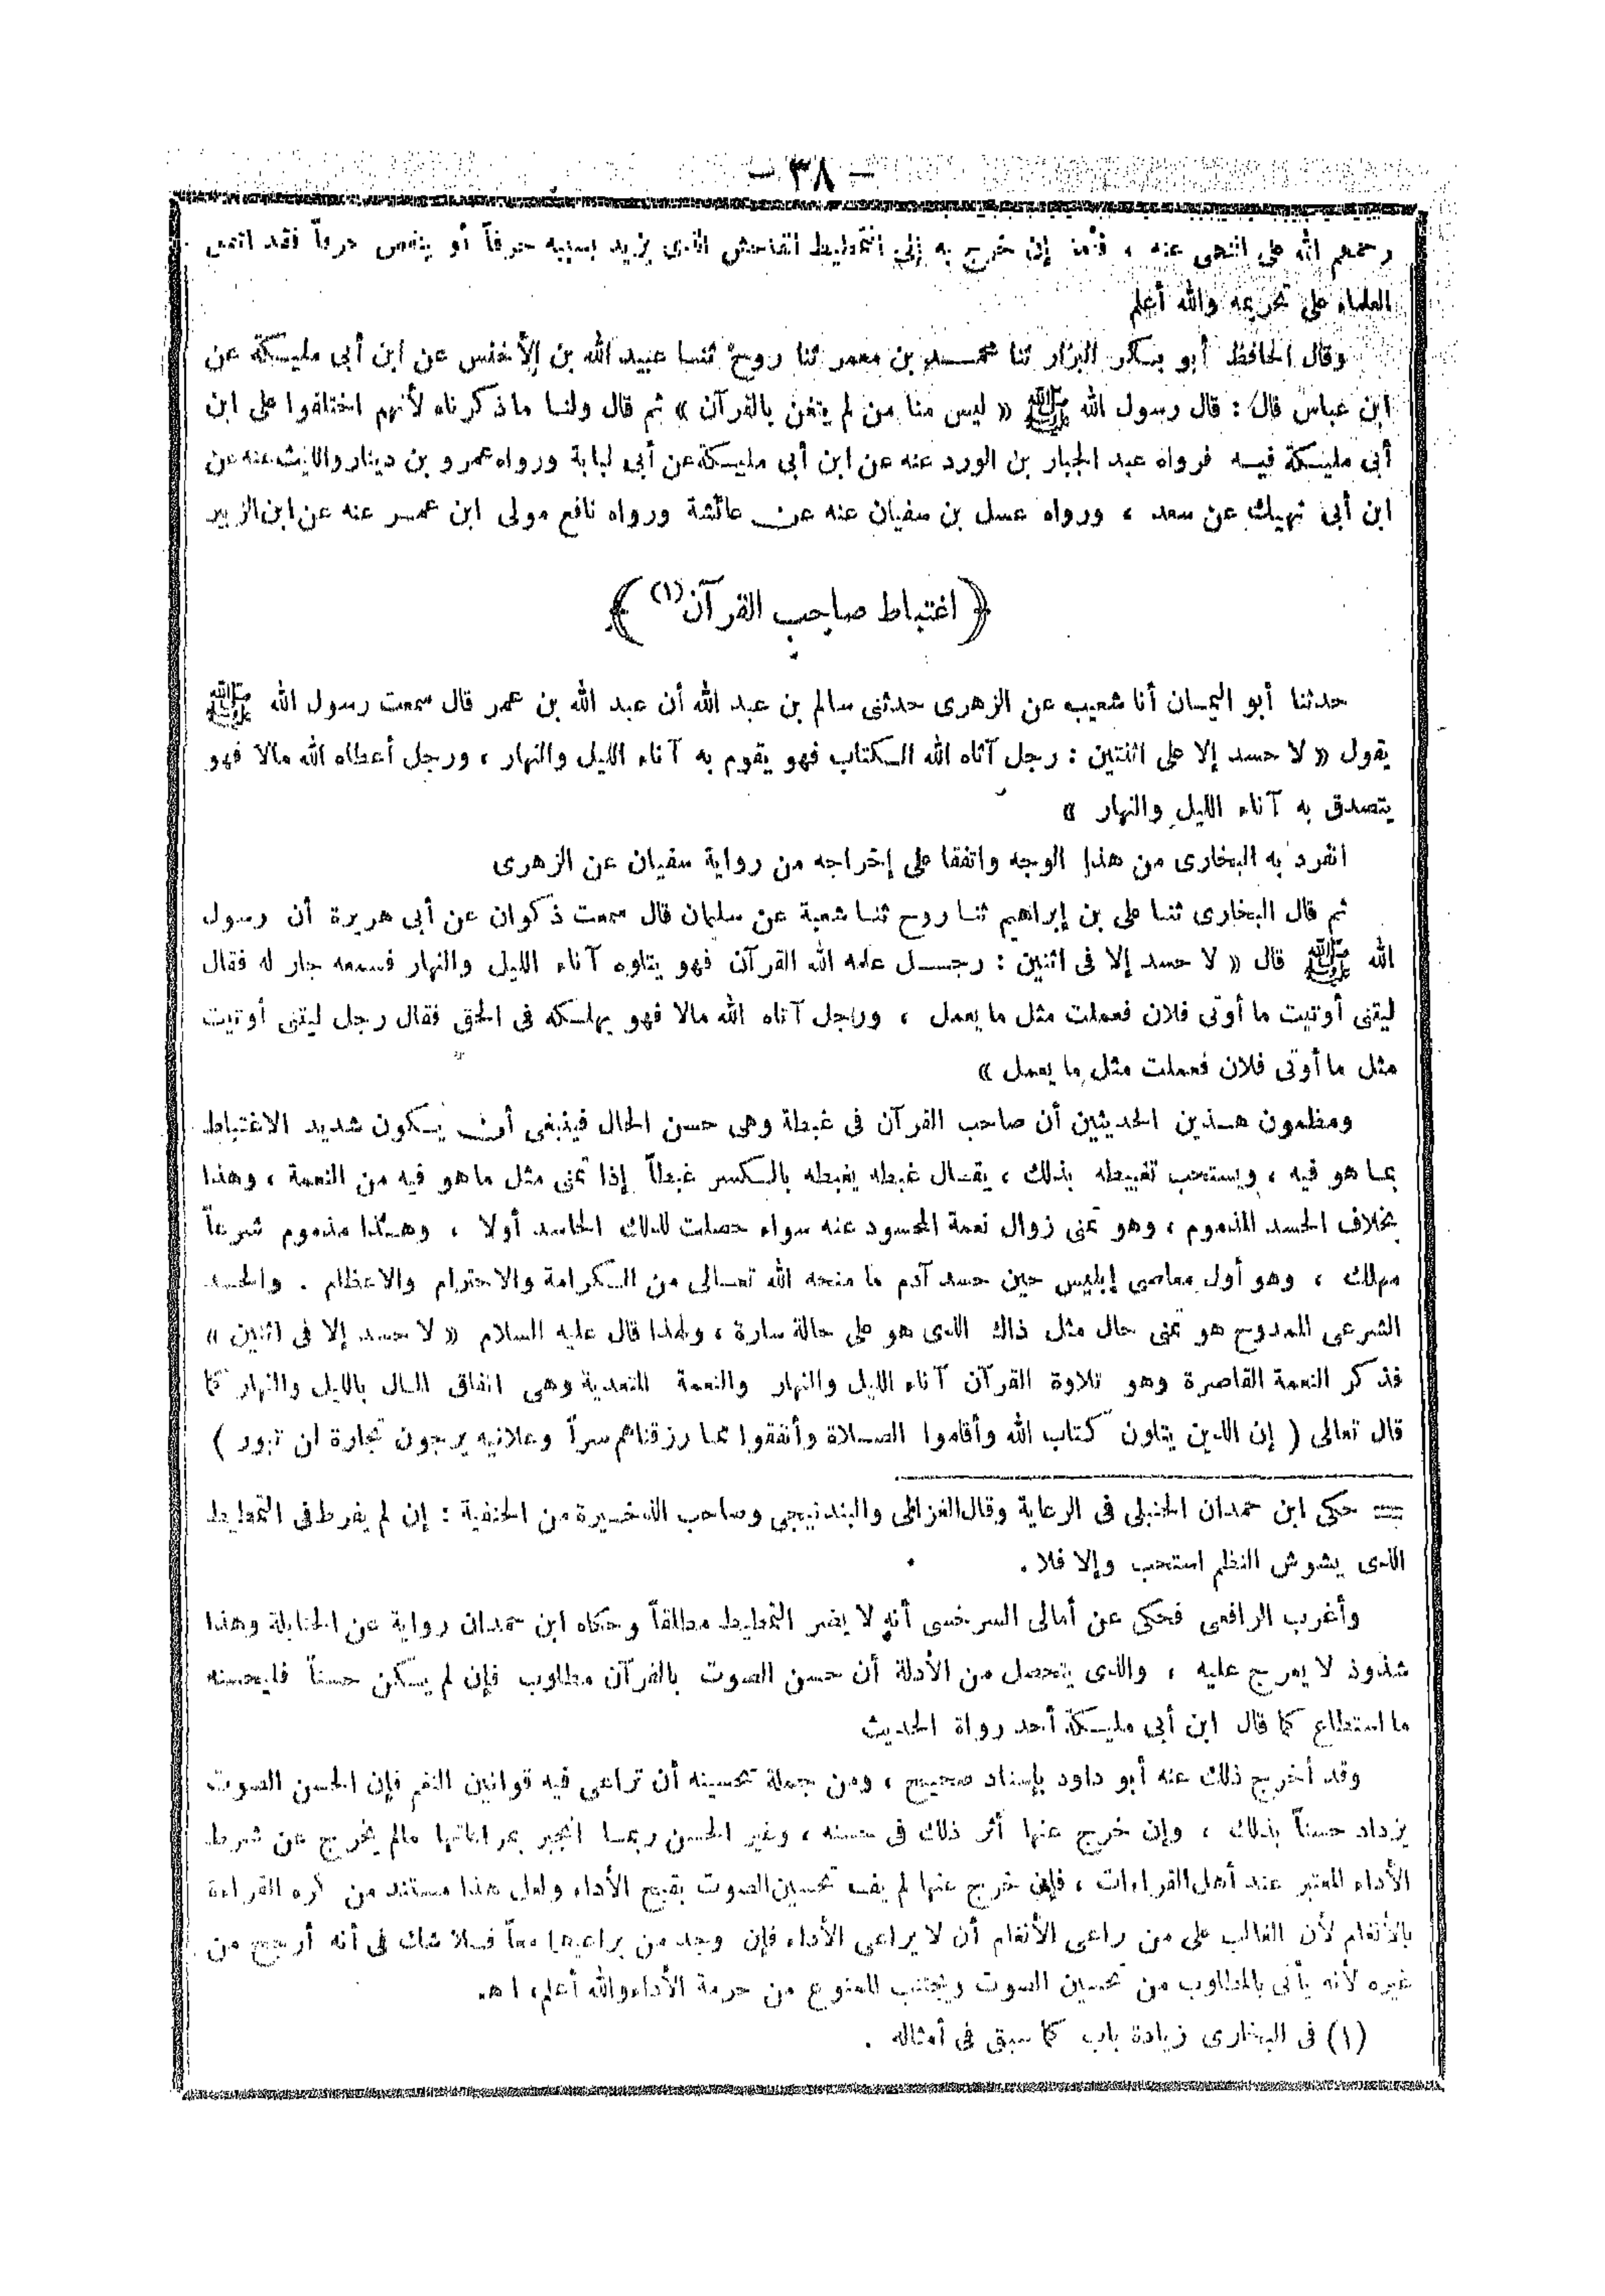 — ٣٨ —
رحمهم الله على النهى عنه ، فأما إن خرج به إلى التمطيط الفاحش الذى يزيد بسببه حرفاً أو ينقص حرفاً فقد اتفق
العلماء على تحريمه والله أعلم
وقال الحافظ أبو بكر البزار ثنا محمد بن معمر ثنا روح ثنا عبيد الله بن الأخنس عن ابن أبى مليكة عن
ابن عباس قال : قال رسول الله ﷺ « ليس منا من لم يتغن بالقرآن » ثم قال ولنا ما ذكرناه لأنهم اختلفوا على ابن
أبى مليكة فيه فرواه عبد الجبار بن الورد عنه عن ابن أبى مليكة عن أبى لبابة ورواه عمرو بن دينار والليث عنه عن
ابن أبى نهيك عن سعد ، ورواه عسل بن سفيان عنه عن عائشة ورواه نافع مولى ابن عمر عنه عن ابن الزبير
﴿ اغتباط صاحب القرآن (١) ﴾
حدثنا أبو اليمان أنا شعيب عن الزهرى حدثنى سالم بن عبد الله أن عبد الله بن عمر قال سمعت رسول الله ﷺ
يقول « لا حسد إلا على اثنتين : رجل آتاه الله الكتاب فهو يقوم به آناء الليل والنهار ، ورجل أعطاه الله مالا فهو
يتصدق به آناء الليل والنهار »
انفرد به البخارى من هذا الوجه واتفقا على إخراجه من رواية سفيان عن الزهرى
ثم قال البخارى ثنا على بن إبراهيم ثنا روح ثنا شعبة عن سليمان قال سمعت ذكوان عن أبى هريرة أن رسول
الله ﷺ قال « لا حسد إلا فى اثنين : رجل علمه الله القرآن فهو يتلوه آناء الليل والنهار فسمعه جار له فقال
ليتنى أوتيت ما أوتى فلان فعملت مثل ما يعمل ، ورجل آتاه الله مالا فهو يهلكه فى الحق فقال رجل ليتنى أوتيت
مثل ما أوتى فلان فعملت مثل ما يعمل »
ومظمون هذين الحديثين أن صاحب القرآن فى غبطة وهى حسن الحال فينبغى أن يكون شديد الاغتباط
بما هو فيه ، ويستحب تغبيطه بذلك ، يقال غبطه يغبطه بالكسر غبطاً إذا تمنى مثل ما هو فيه من النعمة ، وهذا
بخلاف الحسد المذموم ، وهو تمنى زوال نعمة المحسود عنه سواء حصلت لذلك الحاسد أولا ، وهذا مذموم شرعاً
مهلك ، وهو أول معاصى إبليس حين حسد آدم ما منحه الله تعالى من الكرامة والاحترام والاعظام . والحسد
الشرعى الممدوح هو تمنى حال مثل ذاك الذى هو على حالة سارة ، ولهذا قال عليه السلام « لا حسد إلا فى اثنين »
فذكر النعمة القاصرة وهو تلاوة القرآن آناء الليل والنهار والنعمة المتعدية وهى انفاق المال بالليل والنهار كما
قال تعالى ( إن الذين يتلون كتاب الله وأقاموا الصلاة وأنفقوا مما رزقناهم سراً وعلانيه يرجون تجارة لن تبور )
= حكى ابن حمدان الحنبلى فى الرعاية وقال الغزالى والبندنيجى وصاحب الذخيرة من الحنفية : إن لم يفرط فى التمطيط
الذى يشوش النظم استحب وإلا فلا .
وأغرب الرافعى فحكى عن أمالى السرخسى أنه لا يضر التمطيط مطلقاً وحكاه ابن حمدان رواية عن الحنابلة وهذا
شذوذ لا يعرج عليه ، والذى يتحصل من الأدلة أن حسن الصوت بالقرآن مطلوب فإن لم يكن حسناً فليحسنه
ما استطاع كما قال ابن أبى مليكة أحد رواة الحديث
وقد أخرج ذلك عنه أبو داود بإسناد صحيح ، ومن جملة تحسينه أن تراعى فيه قوانين النغم فإن الحسن الصوت
يزداد حسناً بذلك ، وإن خرج عنها أثر ذلك فى حسنه ، وغير الحسن ربما انجبر بمراعاتها مالم يخرج عن شرط
الأداء المعتبر عند أهل القراءات ، فإن خرج عنها لم يف تحسين الصوت بقبح الأداء ولعل هذا مستند من كره القراءة
بالأنغام لأن الغالب على من راعى الأنغام أن لا يراعى الأداء فإن وجد من يراعيهما معاً فلا شك فى أنه أرجح من
غيره لأنه يأتى بالمطلوب من تحسين الصوت ويجتنب الممنوع من حرمة الأداء والله أعلم ، اهـ
(١) فى البخارى زيادة باب كما سبق فى أمثاله .